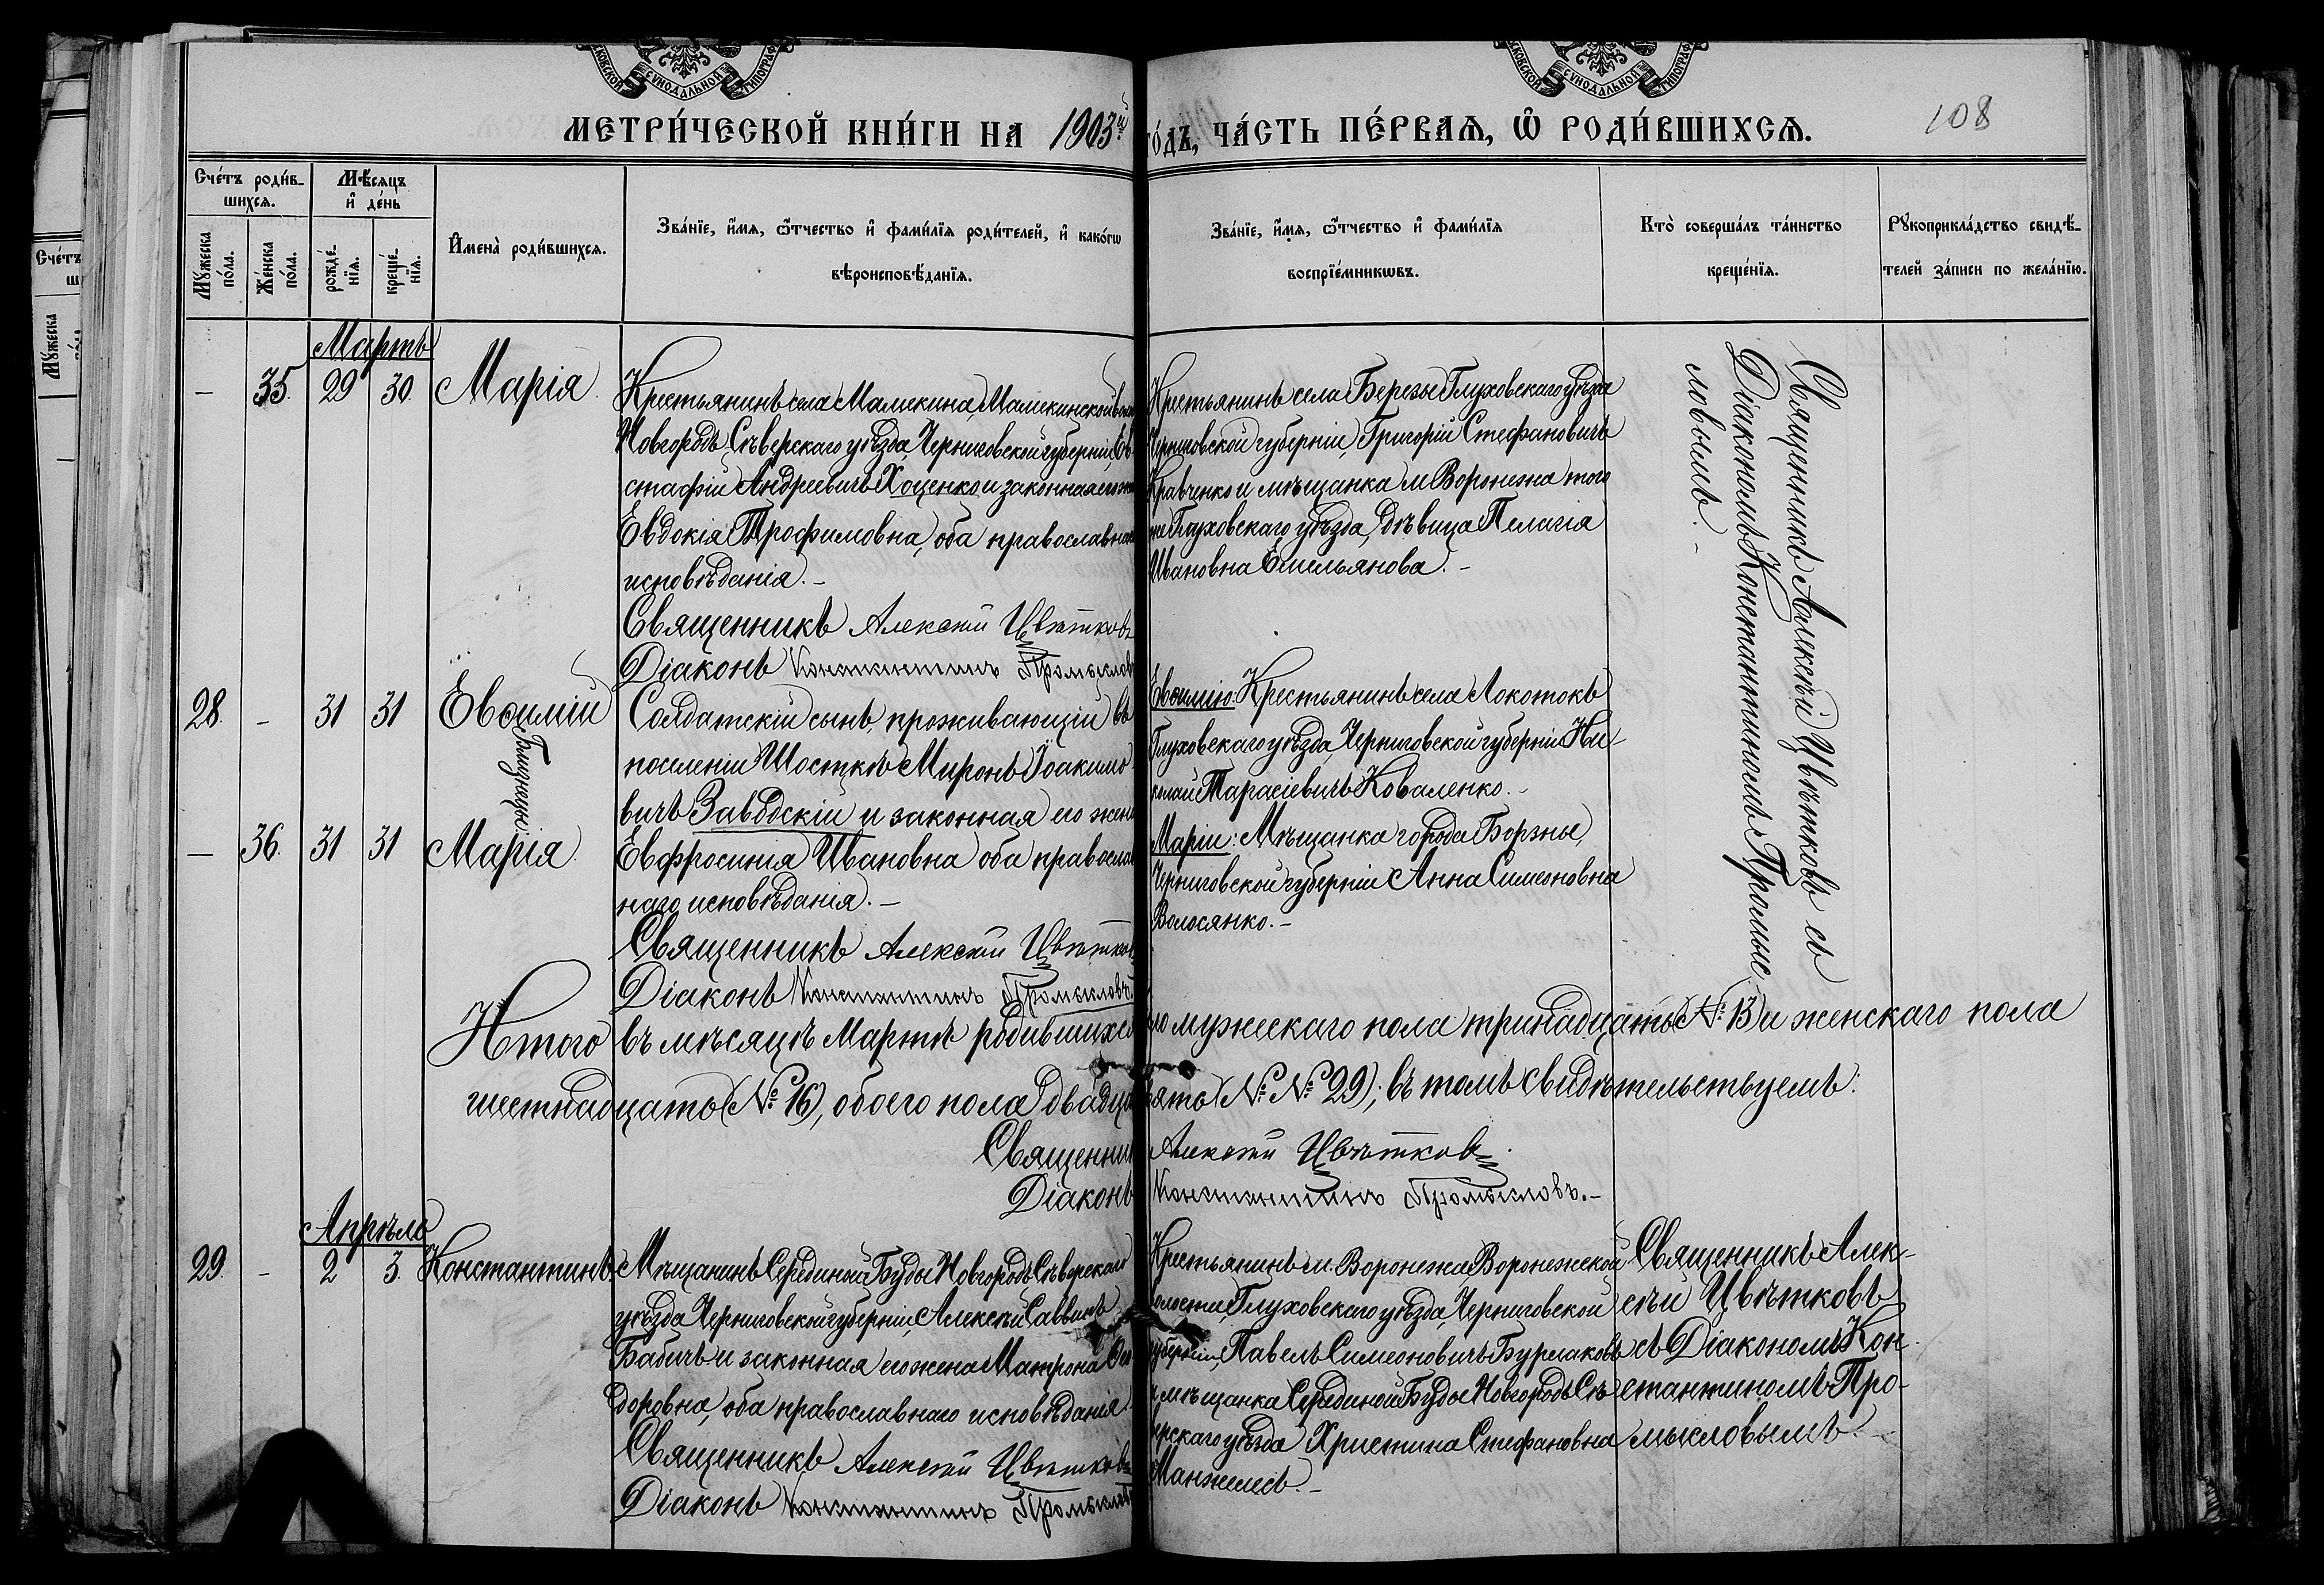 МЕТРИ́ЧЕСКОЙ КНИ́ГИ НА 1903й
ГО́ДЪ, ЧА́СТЬ ПЕ́РВАѦ, Ѡ҆ РОДИ́ВШИХСѦ.
108
Сче́тъ роди́в-
шихсѧ.
Мѣ́сяцъ
и҆ де́нь
Мꙋ́жеска
по́ла.
Же́нска
по́ла.
рожде́-
нїѧ.
креще́-
нїѧ.
И҆мена̀ роди́вшихсѧ.
Зва́нїе, и҆́мѧ, ѻ҆́тчество и҆ фами́лїѧ роди́телей, и҆ како́гѡ
вѣроисповѣ́данїѧ.
Зва́нїе, и҆́мѧ, ѻ҆́тчество и҆ фами́лїѧ
воспрїе́мникѡвъ.
Кто̀ соверша́лъ та́инство
креще́нїѧ.
Рꙋкоприкла́дство свидѣ́-
телей за́писи по жела́нїю.
Мартъ
— 35. 29 30. Марія.
Крестьянинъ села Мамекина, Мамекинской вол
Новгородъ-Сѣверскаго уѣзда, Черниговской губерніи, Ев-
стафій Андреевичъ Хоценко и законная его же
Евдокія Трофимовна, оба православна
исповѣданія. –
Священникъ Алексѣй Цвѣтковъ
Діаконъ Константинъ Промыслов
Крестьянинъ села Березы Глуховскаго уѣзда
Черниговской губерніи, Григорій Стефановичъ
Кравченко и мѣщанка м. Воронежа того
же Глуховскаго уѣзда, дѣвица Пелагія
Ивановна Емельянова. –
Священникъ Алексѣй Цвѣтковъ съ
Діакономъ Константиномъ Промыс-
ловымъ. –
28. – 31 31 Евѳимій
Близнецы.
— 36. 31 31 Марія.
Солдатскій сынъ, проживающій въ
поселеніи Шосткѣ Миронъ Іоакимо
вичъ Заводскій и законная его жена
Евфросинія Ивановна оба правосла
наго исповѣданія. –
Священникъ Алексѣй Цвѣтков
Діаконъ Константинъ Промысловъ.
Евѳимію: Крестьянинъ села Локотокъ
Глуховскаго уѣзда, Черниговской губерніи Ни-
колай Тарасіевичъ Коваленко. –
Маріи: Мѣщанка города Борзны,
Черниговской губерніи Анна Симеоновна
Волосянко. –
Итого въ мѣсяцѣ Мартѣ родившихся
мужескаго пола тринадцать (№ 13) и женскаго пола
шестнадцать (№ 16), обоего пола двадца
вять (№ № 29); въ томъ свидѣтельствуемъ:
Священник Алексѣй Цвѣтковъ.
Діаконъ Константинъ Промысловъ. –
Апрѣль
29. – 2 3. Константинъ
Мѣщанинъ Середина Буды Новгородъ-Сѣверскаго
уѣзда Черниговской губерніи, Алексѣй Саввинъ
Бабичъ и законная его жена Матрона Ѳе
доровна, оба православнаго исповѣданія.
Священникъ Алексѣй Цвѣтковъ
Діаконъ Константинъ Промыслов
Крестьянинъ м. Воронежа, Воронежской
волости, Глуховскаго уѣзда, Черниговской
губерніи, Павелъ Симеоновичъ Бурлаковъ
и мѣщанка Середина Буды Новгородъ-Сѣ
верскаго уѣзда Христина Стефановна
Манжелей. –
Священникъ Алек-
сѣй Цвѣтковъ
съ Діакономъ Кон-
стантиномъ Про-
мысловымъ. –